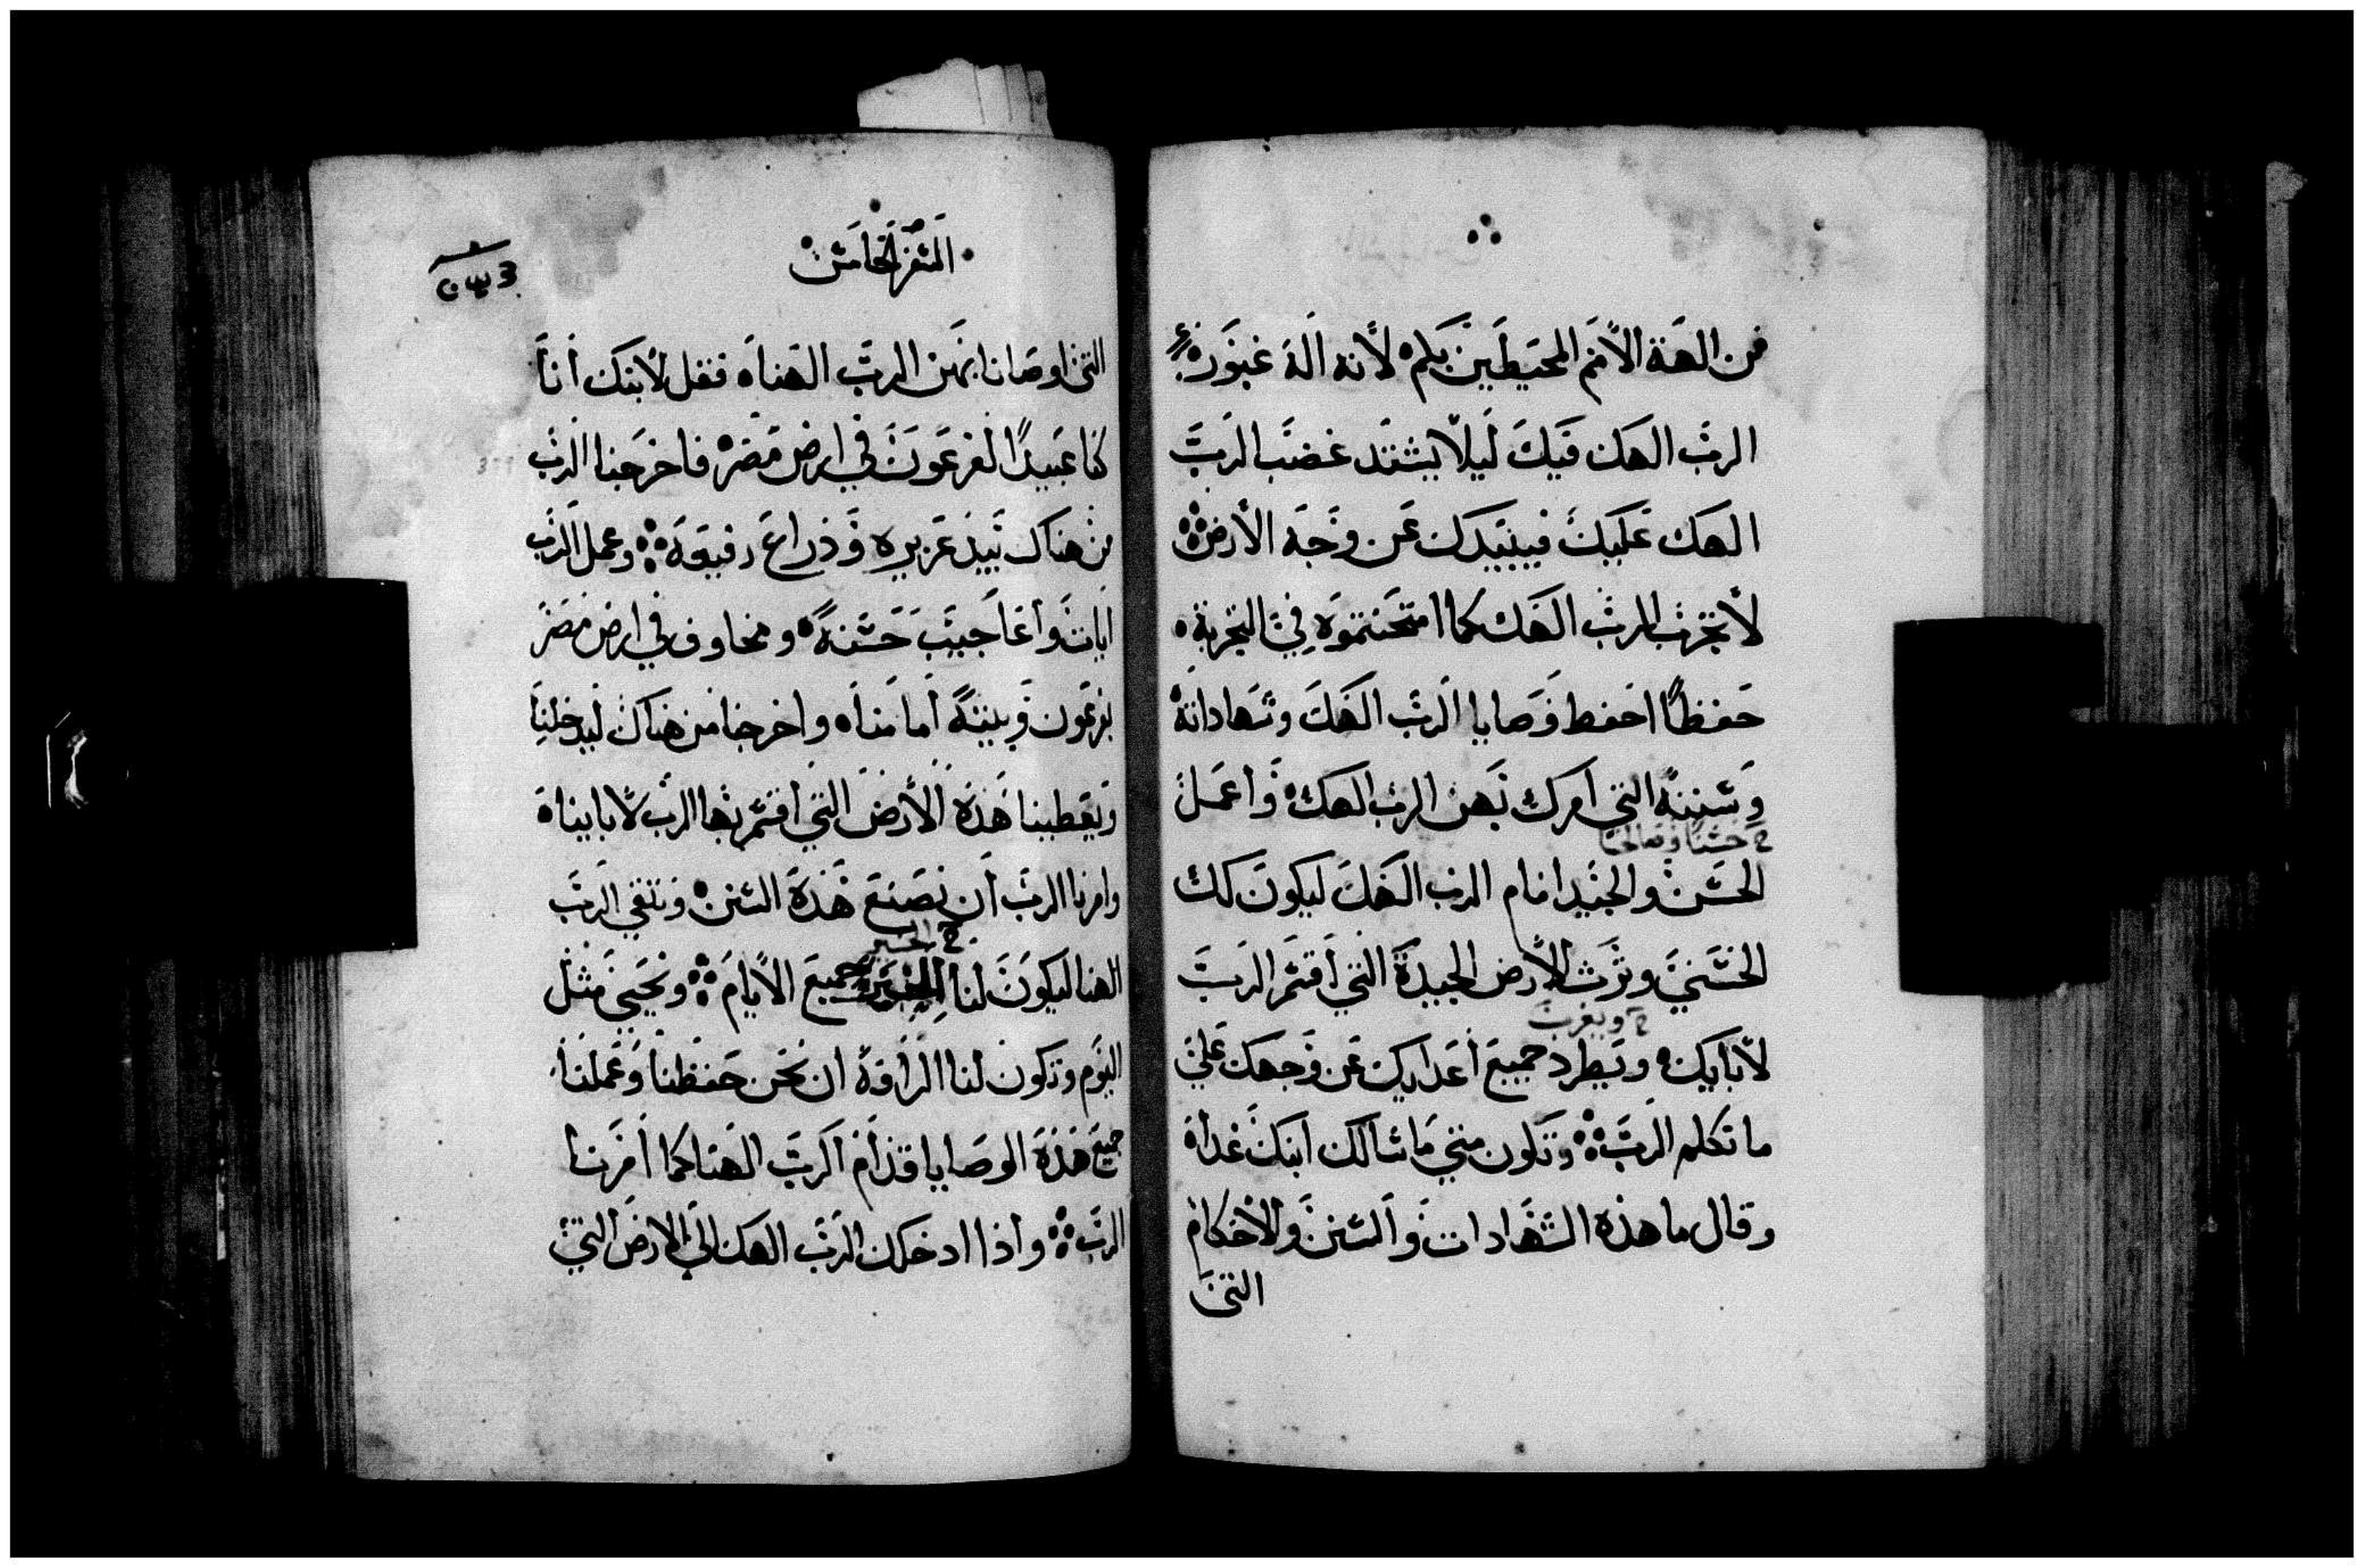 من الهة الأمم المحيطين بكم لأنه اله غيور
الرب الهك فيك ليلا يشتد غضب الرب
الهك عليك فيبيدك عن وجه الأرض
لا تجرب الرب الهك كما امتحنتموه في التجربة
حفظًا احفط وصايا الرب الهك وشهاداته
وسننه التي امرك بهن الرب الهك واعمل
حسنا وصالحا
الحسن والجيد امام الرب الهك ليكون لك
الحسني وترث الأرض الجيدة التي أقسم الرب
لأبايك ويطرد جميع أعدايك عن وجهك علي
ما تكلم الرب وتكون متي ما سالك ابنك غداه
وقال ما هذه الشهادات والسنن والأحكام
التي
السفر الخامس
التي اوصانا بهن الرب الهناه فقل لأبنك أنا
كنا عبيدًا لفرعون في ارض مصر فاخرجنا الرب
من هناك بيد عزيزه وذراع رفيعة وعمل الرب
ايات وأعاجيب حسنةً ومخاوف في ارض مصر
بفرعون وبيتهً أمامناه واخرجنا من هناك ليدخلنا
ويعطينا هذه الأرض التي أقسم بها الرب لأباينا
وامرنا الرب أن نصنع هذه السنن ونتقي الرب
الهنا ليكون لنا الخير جميع الأيام ونحيي مثل
اليوم وتكون لنا الرافة ان نحن حفظنا وعملنا
جميع هذه الوصايا قدام الرب الهنا كما أمرنا
الرب واذا ادخلك الرب الهك الي الارض التي